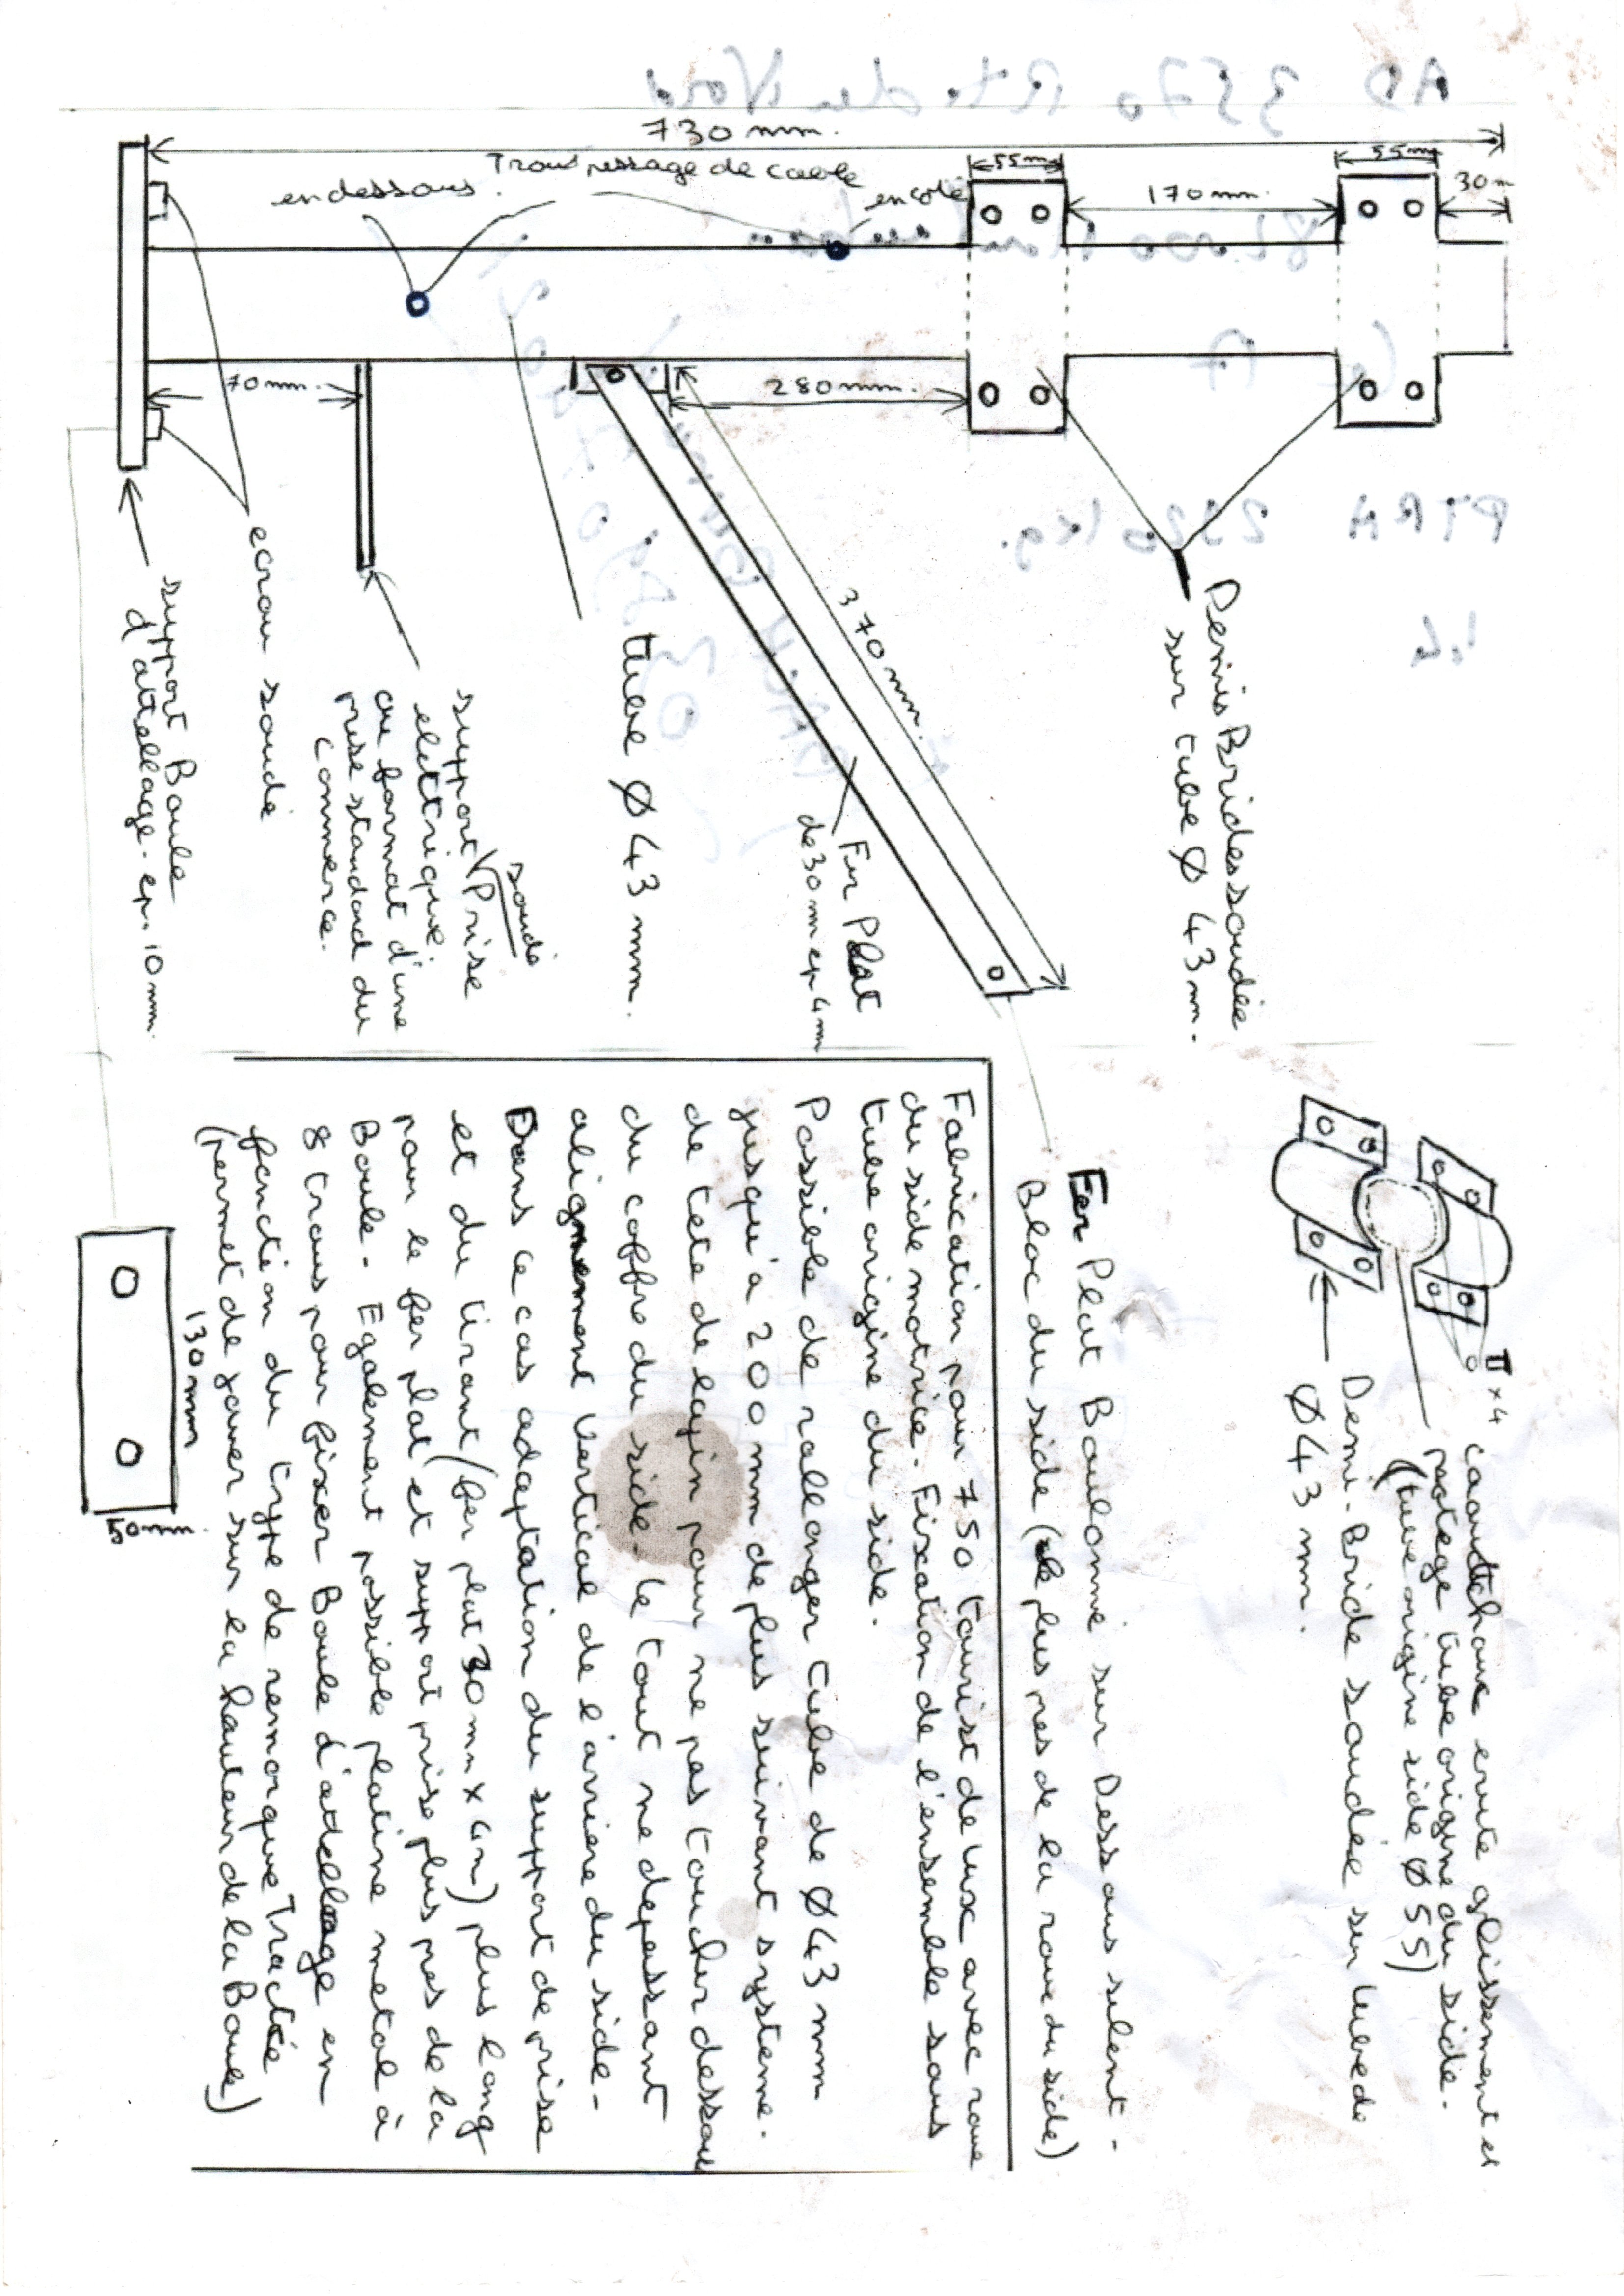 730 mm.
Trous passage de cable
en dessous.
en coté
55mm
170mm.
55mm
30m
70mm.
280mm.
370mm.
support Boule
d'attellage. ep. 10mm.
ecrou soudé
soudé
support Prise
eletrique
au format d'une
prise standard du
commerce.
tube Ø 43 mm.
Fer Plat
de 30mm ep 4m
Demis Brides soudée
sur tube Ø 43mm.
x4
caoutthouc evite glissement et
protege tube origine du side.
(tube origine side Ø 55)
Demi-Bride soudée sur tube de
Ø 43 mm.
Fer Plat Boulonné sur Dessous silent-
Bloc du side (le plus pres de la roue du side)
Fabrication pour 750 tourist de luxe avec roue
du side motrice. Fixation de l'ensemble sous
tube origine du side.
Possible de rallonger tube de Ø43 mm
jusqu'à 200mm de plus suivant systeme.
de tete de lapin pour ne pas toucher dessous
du coffre du side. Le tout ne depassant
alignement vertical de l'arriere du side.
Dans ce cas adaptation du support de prise
et du tirant (fer plat 30mm x 4m) plus long
pour le fer plat et support prise plus pres de la
Boule. Egalement possible platine metal à
8 trous pour fixer Boule d'attellage en
fonction du type de remorque Tractée
(permet de jouer sur la hauteur de la Boule)
130mm
50mm.
AD 3570 Rte du Nord
PTRA 2320 kg.